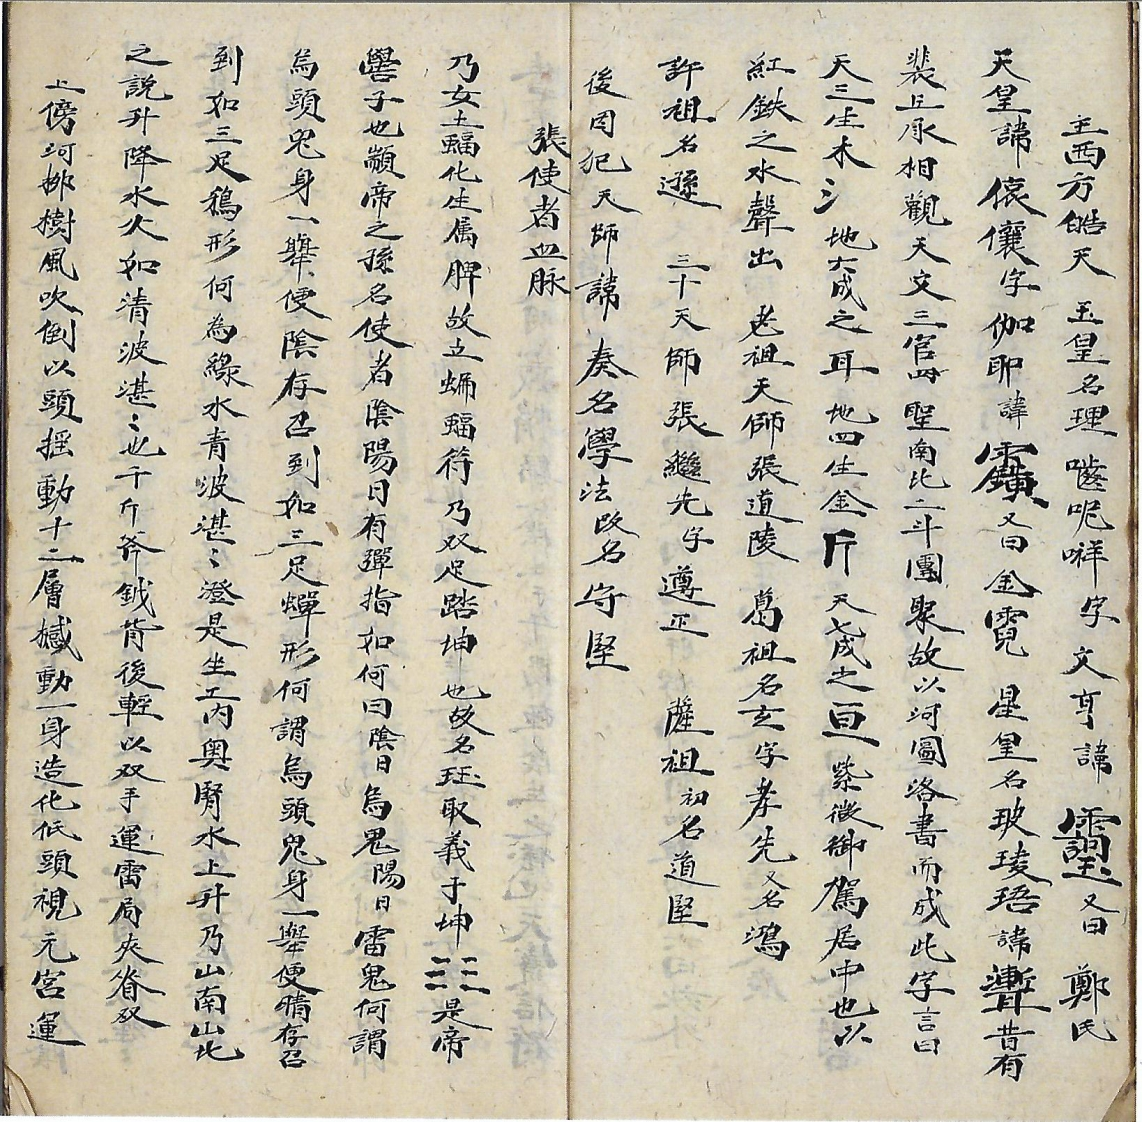 主西方皓天 玉皇名理 嚙呢哶字 文亨諱 又曰 鄭民
天皇諱 儴字伽耶諱 又曰金霓 星皇名玻琙珸諱 昔有
裴丘承相觀天文三官四聖南北二斗團聚故以河圖洛書而成此字言曰
天三生木氵地六成之耳地四生金斤天七成之亘紫微御駕居中也以
紅鉄之水聲出 老祖天師張道陵 葛祖名玄字孝先又名鴻
許祖名遜 三十天師張繼先字遵正 薩祖初名道堅
後因犯天師諱 奏名學法改名守堅
張使者血脉
乃女土蝠化生属脾故立蝙蝠符乃双足踏坤也故名珏取義于坤☷是帝
嚳子也顓帝之孫名使者陰陽日有彈指如何曰陰日烏鬼陽日雷鬼何謂
烏頭鬼身一舉便陰存召到如三足蟬形何謂烏頭鬼身一舉便晴存召
到如三足鴉形何為綠水青波湛〻澄是坐工内奧腎水上升乃山南山北
之説升降水火如清波湛〻也千斤斧鉞背後輕以双手運雷局夾脊双
上傍河栁樹風吹倒以頭摇動十二層撼動一身造化低頭視元宮運